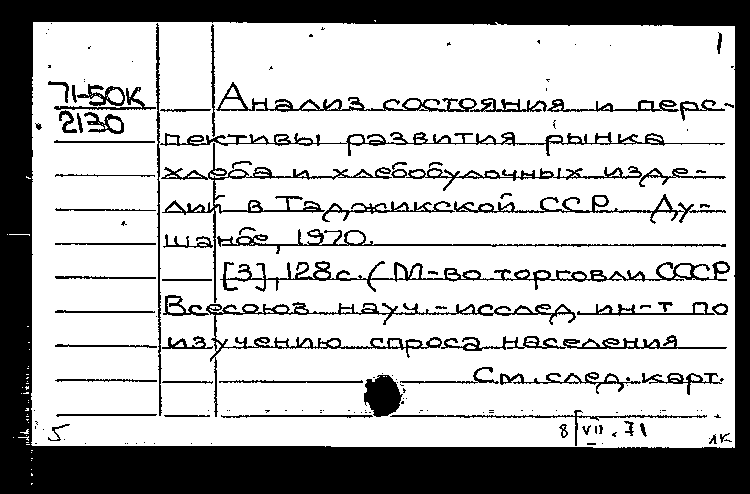 1
71-50К
2130
Анализ состояния и перс-
пективы развития рынка
хлеба и хлебобулочных изде-
лий в Таджикской ССР. Ду-
шанбе, 1970.
[3], 128с. (М-во торговли СССР
Всесоюз. науч.-исслед. ин-т по
изучению спроса населения
См. след. карт.
5 8/VII.71 ЛК